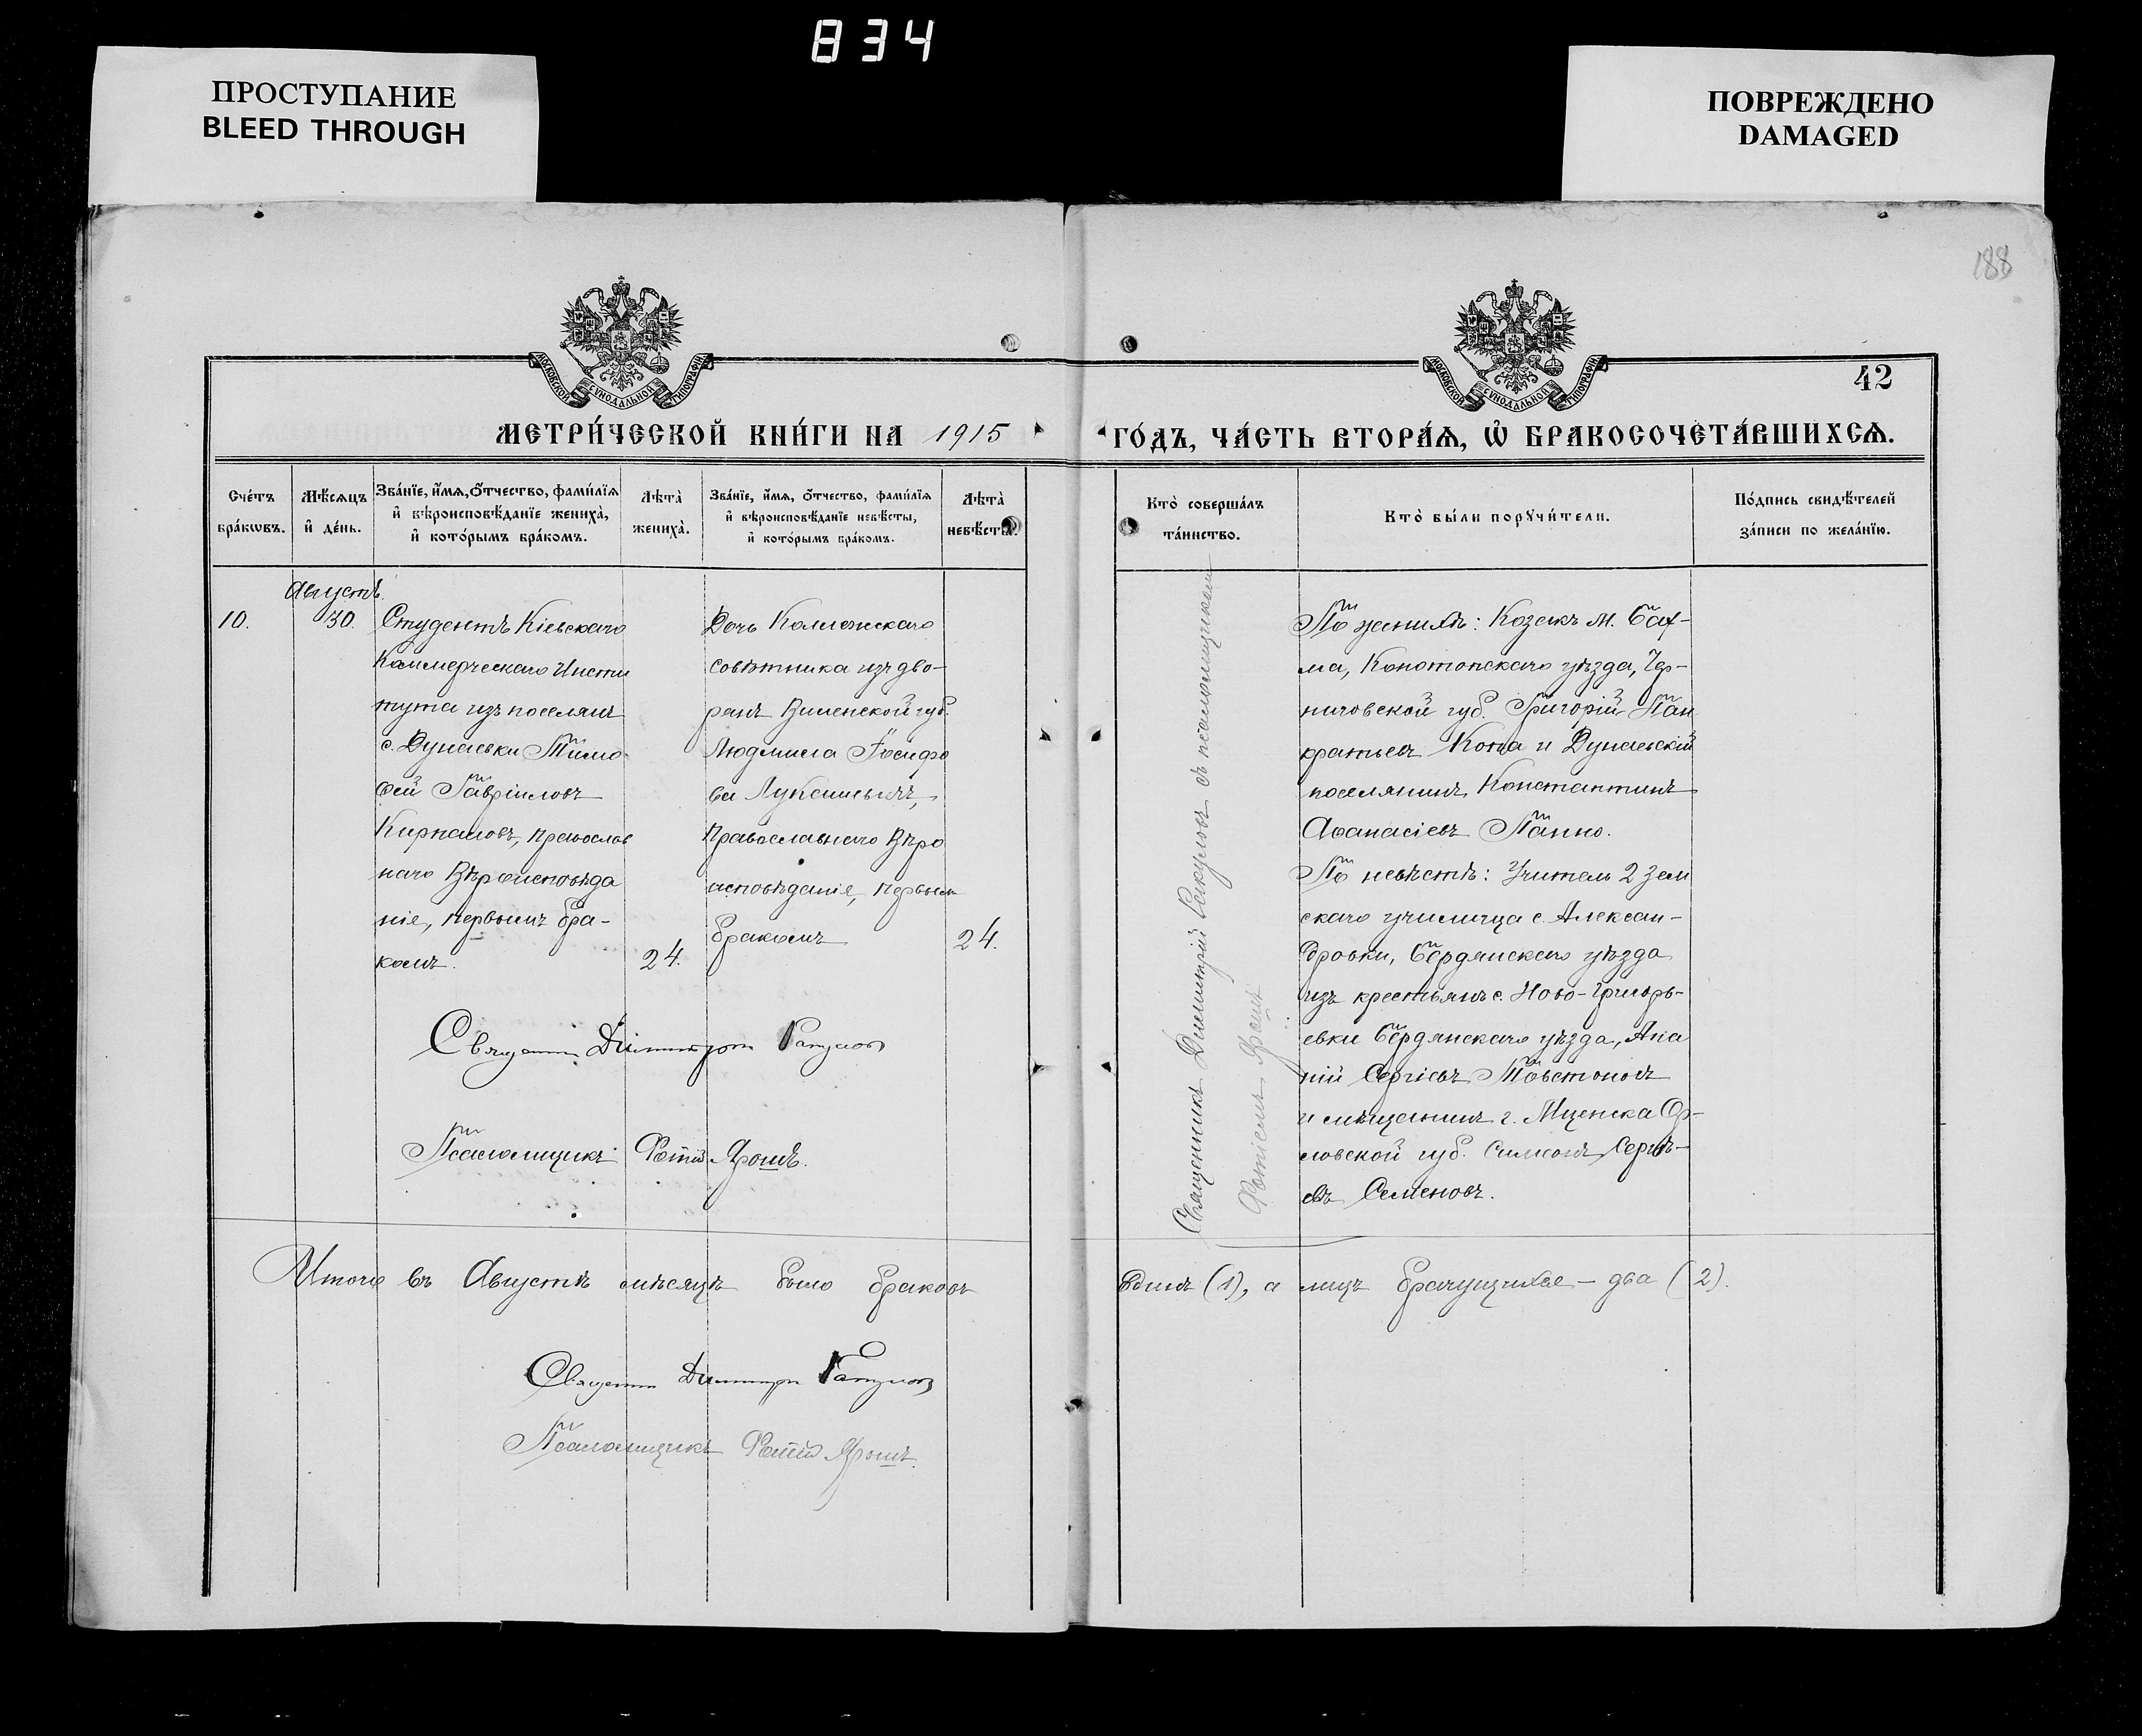 834
ПРОСТУПАНИЕ
BLEED THROUGH
ПОВРЕЖДЕНО
DAMAGED
188
МОСКОВСКОЙ СУНОДАЛЬНОЙ ТИПОГРАФІИ
МОСКОВСКОЙ СУНОДАЛЬНОЙ ТИПОГРАФІИ
42
МЕТРИ́ЧЕСКОЙ КНИ́ГИ НА 1915 ГО́ДЪ, ЧА́СТЬ ВТОРА́Ѧ, Ѡ҆ БРАКОСОЧЕТА́ВШИХСѦ.
Сче́тъ
бра́кѡвъ.
Мѣ́сѧцъ
и҆ де́нь.
Зва́нїе, и҆́мѧ, ѻ҆́тчество, фами́лїѧ
и҆ вѣроисповѣ́данїе жениха̀,
и҆ кото́рымъ бра́комъ.
Лѣта̀
жениха̀.
Зва́нїе, и҆́мѧ, ѻ҆́тчество, фами́лїѧ
и҆ вѣроисповѣ́данїе невѣ́сты,
и҆ кото́рымъ бра́комъ.
Лѣта̀
невѣ́сты.
Кто̀ соверша́лъ
та́инство.
Кто̀ бы́ли порꙋчи́тели.
По́дпись свидѣ́телей
за́писи по жела́нїю.
Августъ.
10.
30.
Студентъ Кіевскаго
Коммерческаго Инсти
тута изъ поселянъ
с. Дунаевки Тимо-
ѳей Гавріиловъ
Кирпаловъ, Православ
наго Вѣроисповѣда
нія, первымъ бра-
комъ.
24.
Дочь Коллежскаго
совѣтника изъ дво-
рянъ Виленской губ.
Людмила Іосифо
ва Лукашевичъ,
Православнаго Вѣро
исповѣданія, первымъ
бракомъ
24.
Священникъ Димитрій съ псаломщикомъ
Фотіемъ Ярошъ
По женихѣ: Козакъ м. Бах-
ма, Конотопскаго уѣзда, Чер-
ниговской губ. Григорій Пан
кратьевъ и Дунаевскій
поселянинъ Константинъ
Аѳанасіевъ Панно.
По невѣстѣ: Учитель 2 зем
скаго училища с. Алексан-
дровки, Бердянскаго уѣзда
изъ крестьянъ с. Ново-Григорь-
евки Бердянскаго уѣзда, Ана
ній Сергіевъ Товстоногъ
и мѣщанинъ г. Мценска Ор-
ловской губ. Симеонъ Сергѣ-
евъ Семеновъ.
Священникъ Димитрій
Псаломщикъ Фотій Ярошъ.
Итого въ Августѣ мѣсяцѣ было браковъ одинъ (1), а лицъ брачущихся - два (2).
Священникъ Димитрій
Псаломщикъ Фотій Ярошъ.